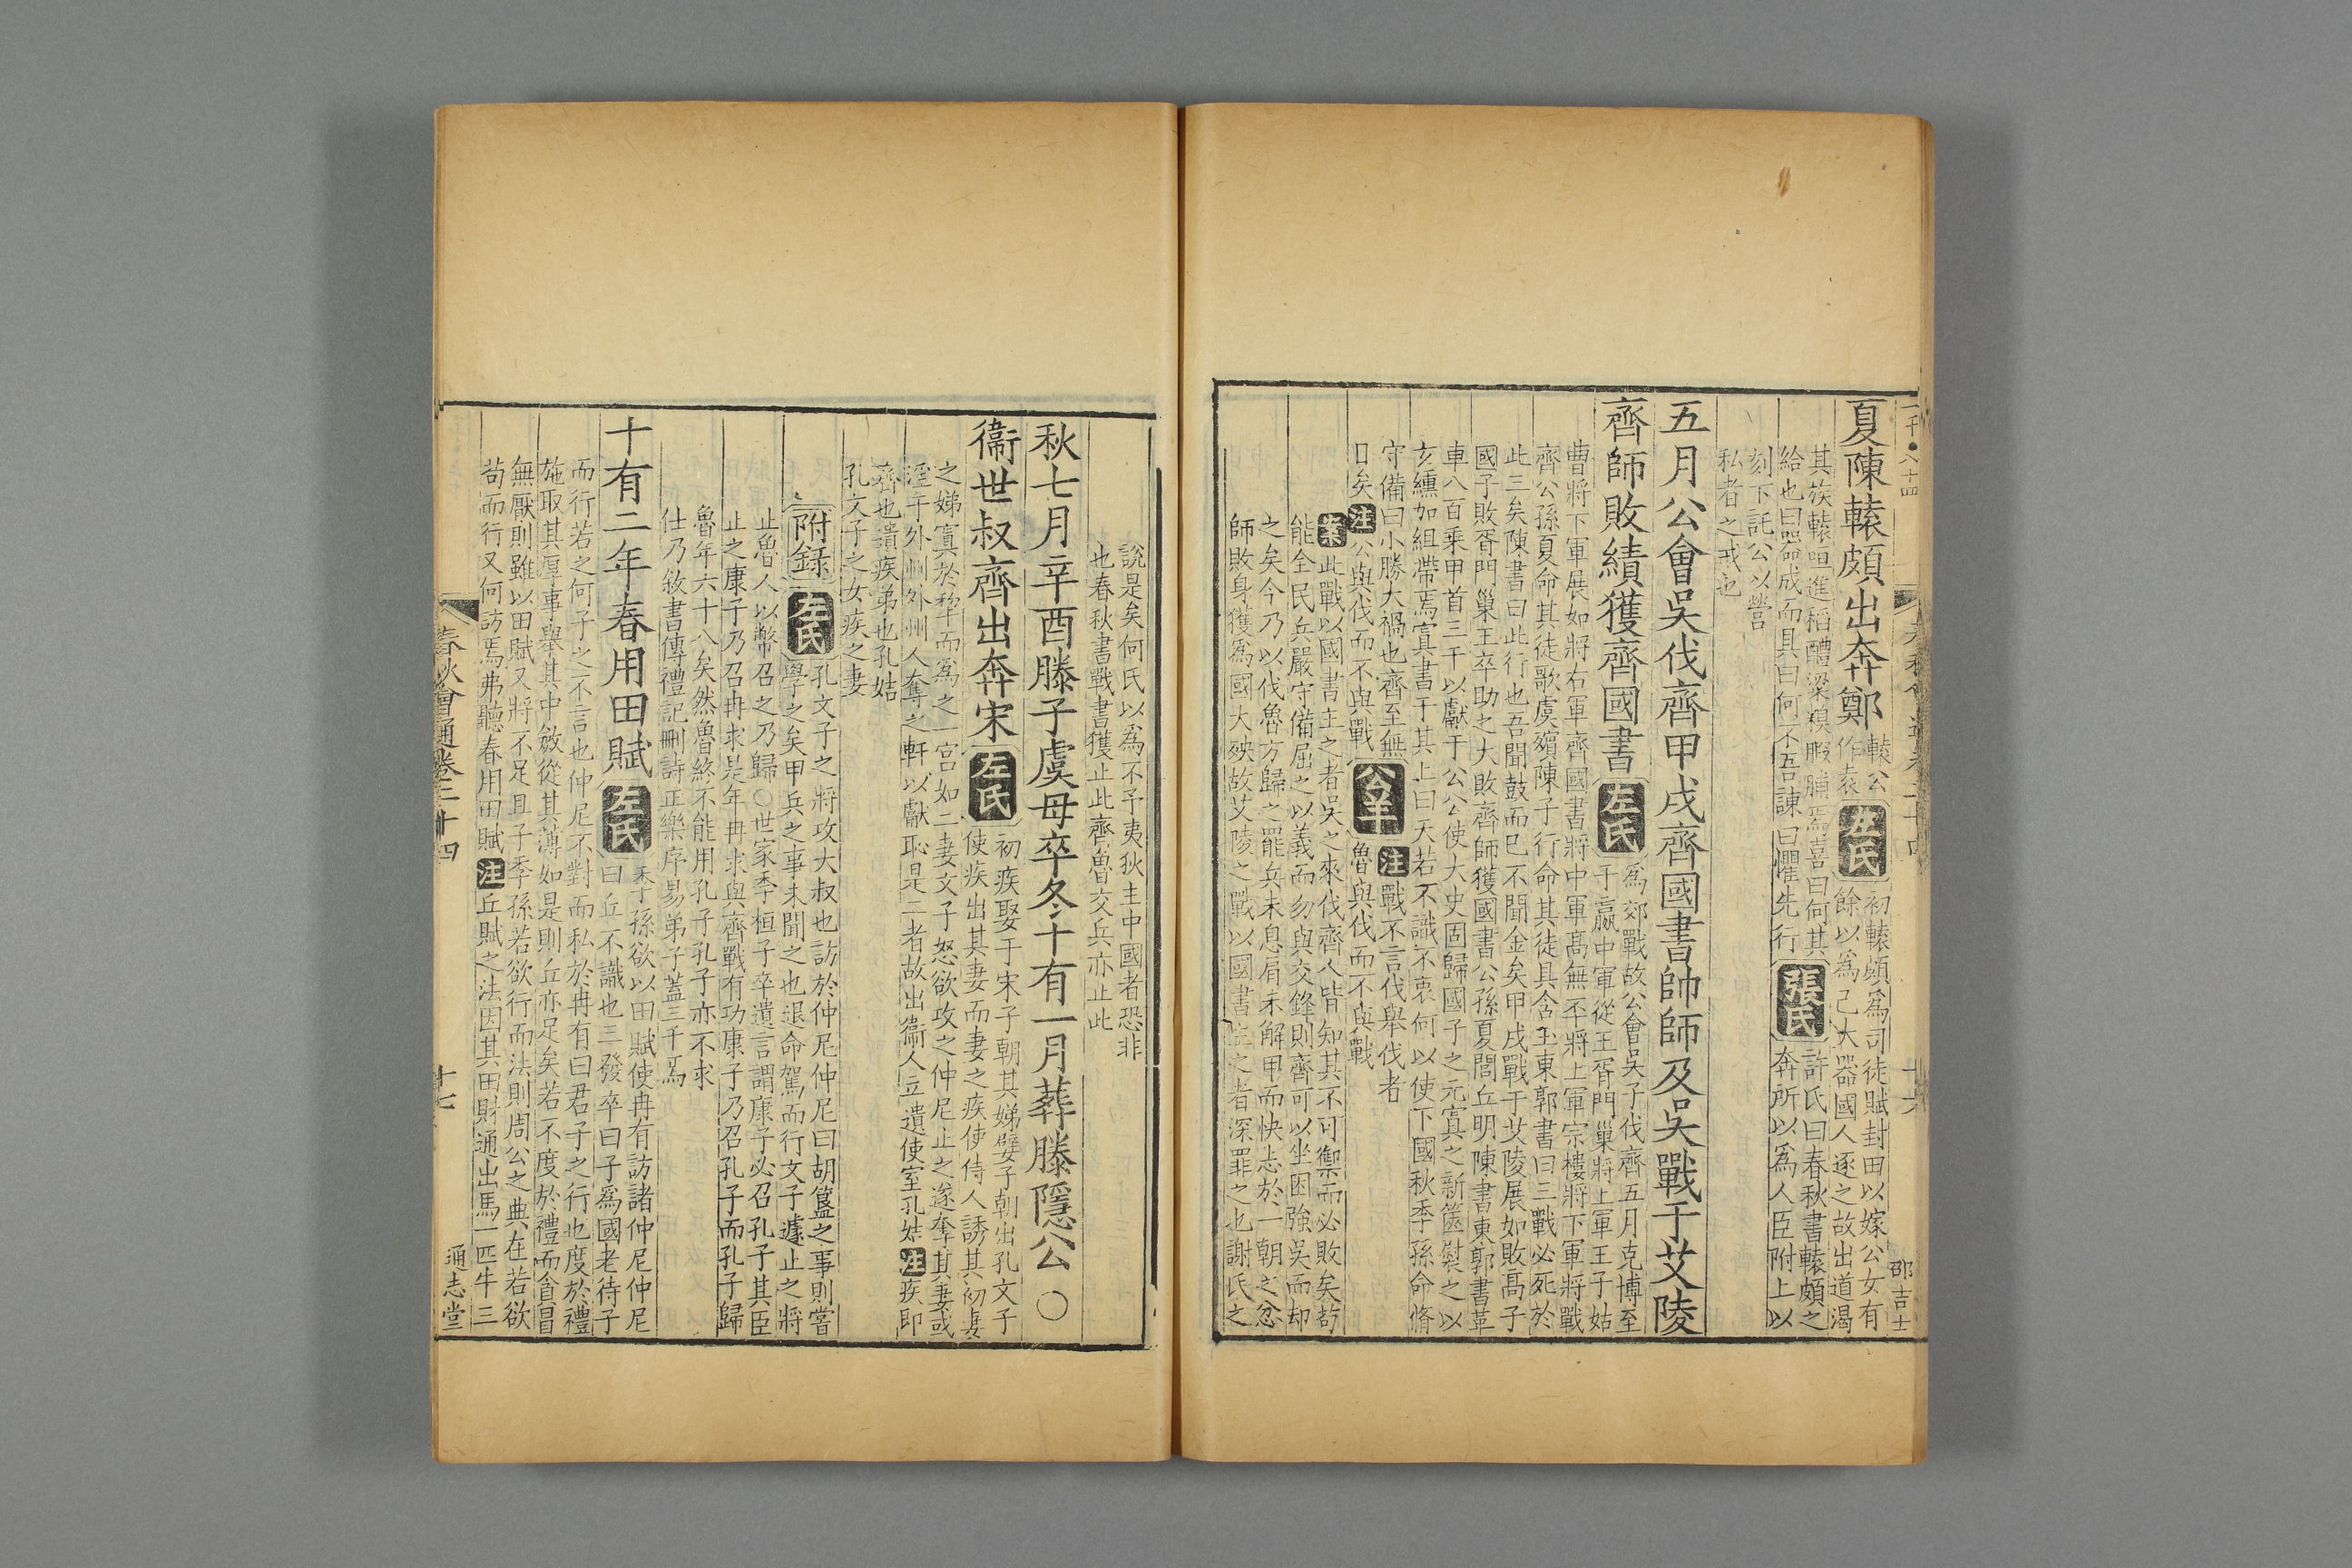 夏陳轅頗出奔鄭
轅公
作袁
左氏
初轅頗為司徒賦封田以嫁公女有
餘以為己大器國人逐之故出道渴
其族轅咺進稻醴粱糗腶脯焉喜曰何其
給也曰器成而具曰何不吾諫曰懼先行
張氏
許氏曰春秋書轅頗之
奔所以為人臣附上以
刻下託公以營
私者之戒也
五月公會吳伐齊甲戌齊國書帥師及吳戰于艾陵
齊師敗績獲齊國書
左氏
為郊戰故公會吳子伐齊五月克博至
于嬴中軍從王胥門巢將上軍王子姑
曹將下軍展如將右軍齊國書將中軍高無㔻將上軍宗樓將下軍將戰
齊公孫夏命其徒歌虞殯陳子行命其徒具含玉東郭書曰三戰必死於
此三矣陳書曰此行也吾聞鼓而已不聞金矣甲戌戰于艾陵展如敗高子
國子敗胥門巢王卒助之大敗齊師獲國書公孫夏閭丘明陳書東郭書革
車八百乘甲首三千以獻于公公使大史固歸國子之元寘之新篋褽之以
玄纁加組帶焉寘書于其上曰天若不識不衷何以使下國秋季孫命脩
守備曰小勝大禍也齊至無
日矣
注
公與伐而不與戰
公羊
注
戰不言伐舉伐者
魯與伐而不與戰
案
此戰以國書主之者吳之來伐齊人皆知其不可禦而必敗矣苟
能全民兵嚴守備屈之以義而勿與交鋒則齊可以坐困強吳而却
之矣今乃以伐魯方歸之罷兵未息肩未解甲而快志於一朝之忿
師敗身獲為國大殃故艾陵之戰以國書主之者深罪之也謝氏之
邵吉士
說是矣何氏以為不予夷狄主中國者恐非
也春秋書戰書獲止此齊魯交兵亦止此
秋七月辛酉滕子虞母卒冬十有一月葬滕隱公○
衞世叔齊出奔宋
左氏
初疾娶于宋子朝其娣嬖子朝出孔文子
使疾出其妻而妻之疾使侍人誘其初妻
之娣寘於犂而為之一宮如二妻文子怒欲攻之仲尼止之遂奪其妻或
淫于外州外州人奪之軒以獻恥是二者故出衞人立遺使室孔姞
注
疾即
齊也遺疾弟也孔姞
孔文子之女疾之妻
附錄
左氏
孔文子之將攻大叔也訪於仲尼仲尼曰胡簋之事則嘗
學之矣甲兵之事未聞之也退命駕而行文子遽止之將
止魯人以幣召之乃歸○世家季桓子卒遺言謂康子必召孔子其臣
止之康子乃召冉求是年冉求與齊戰有功康子乃召孔子而孔子歸
魯年六十八矣然魯終不能用孔子孔子亦不求
仕乃敘書傳禮記刪詩正樂序易弟子蓋三千焉
十有二年春用田賦
左氏
季孫欲以田賦使冉有訪諸仲尼仲尼
曰丘不識也三發卒曰子為國老待子
而行若之何子之不言也仲尼不對而私於冉有曰君子之行也度於禮
施取其厚事舉其中斂從其薄如是則丘亦足矣若不度於禮而貪冒
無厭則雖以田賦又將不足且子季孫若欲行而法則周公之典在若欲
苟而行又何訪焉弗聽春用田賦
注
丘賦之法因其田財通出馬一匹牛三
春秋會通卷二十四
十七
通志堂